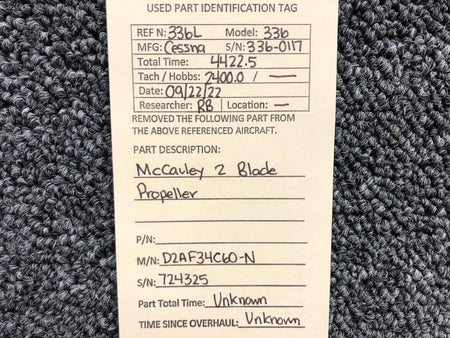 USED PART IDENTIFICATION TAG
REF N: 336L Model: 336
MFG: Cessna S/N: 336-0117
Total Time: 4422.5
Tach / Hobbs: 2400.0 / —
Date: 09/22/22
Researcher: RB Location: —
REMOVED THE FOLLOWING PART FROM
THE ABOVE REFERENCED AIRCRAFT.
PART DESCRIPTION:
McCauley 2 Blade
Propeller
P/N:
M/N: D2AF34C60-N
S/N: 724325
Part Total Time: Unknown
TIME SINCE OVERHAUL: Unknown